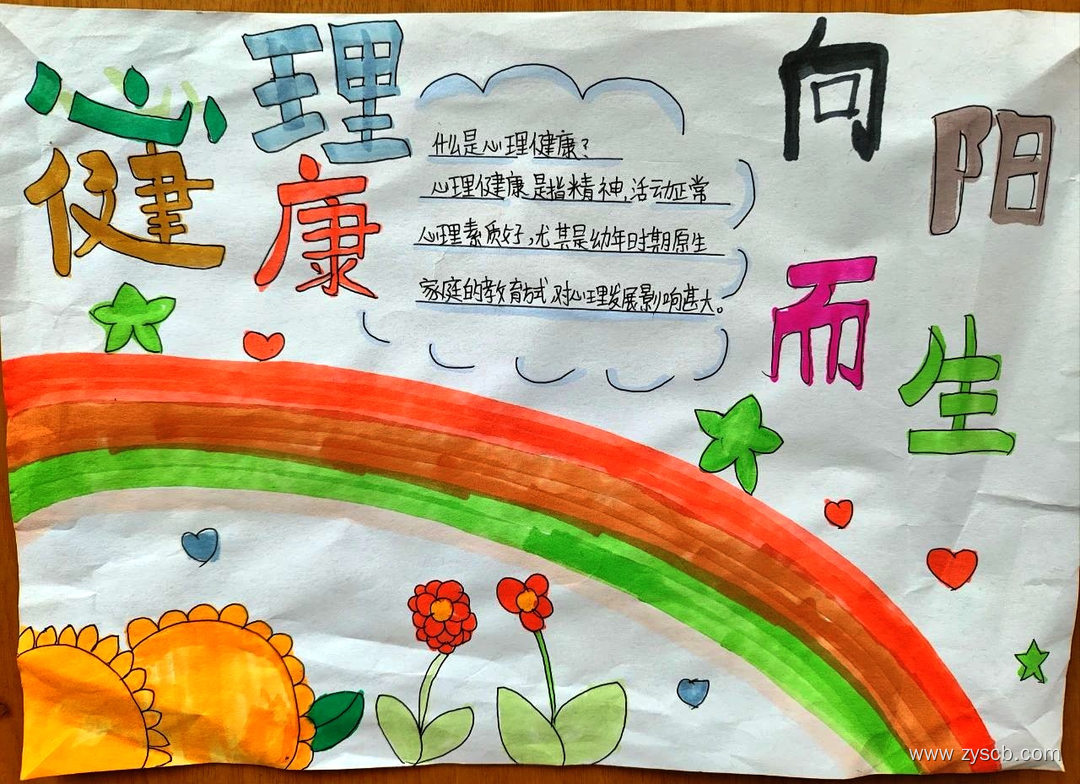 心理
健康
什么是心理健康?
心理健康是指精神,活动正常
心理素质好,尤其是幼年时期原生
家庭的教育方式,对心理发展影响甚大。
向阳
而生
www.zyscb.com